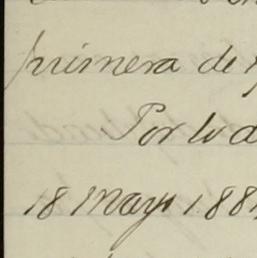 primera de
Por lo
18 Mayo 188